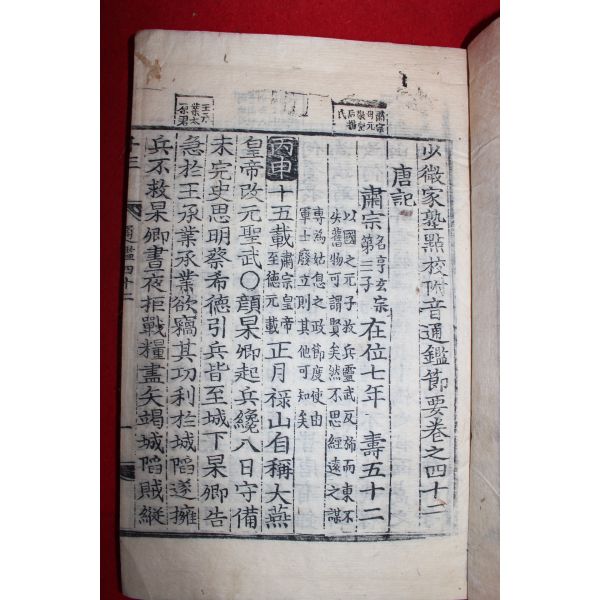 少微家塾點校附音通鑑節要卷之四十二
唐記
肅宗 名亨玄宗第三子 在位七年 壽五十二
以國之元子救兵靈武反斾而東不
失舊物可謂賢矣然不思經遠之謀
專爲姑息之政節度使由
軍士廢立則其他可知矣
丙申 十五載 肅宗皇帝至德元載 正月祿山自稱大燕
皇帝改元聖武〇顔杲卿起兵纔八日守備
未完史思明蔡希德引兵皆至城下杲卿告
急於王承業承業欲竊其功利於城陷遂擁
兵不救杲卿晝夜拒戰糧盡矢竭城陷賊縱
通鑑四十二